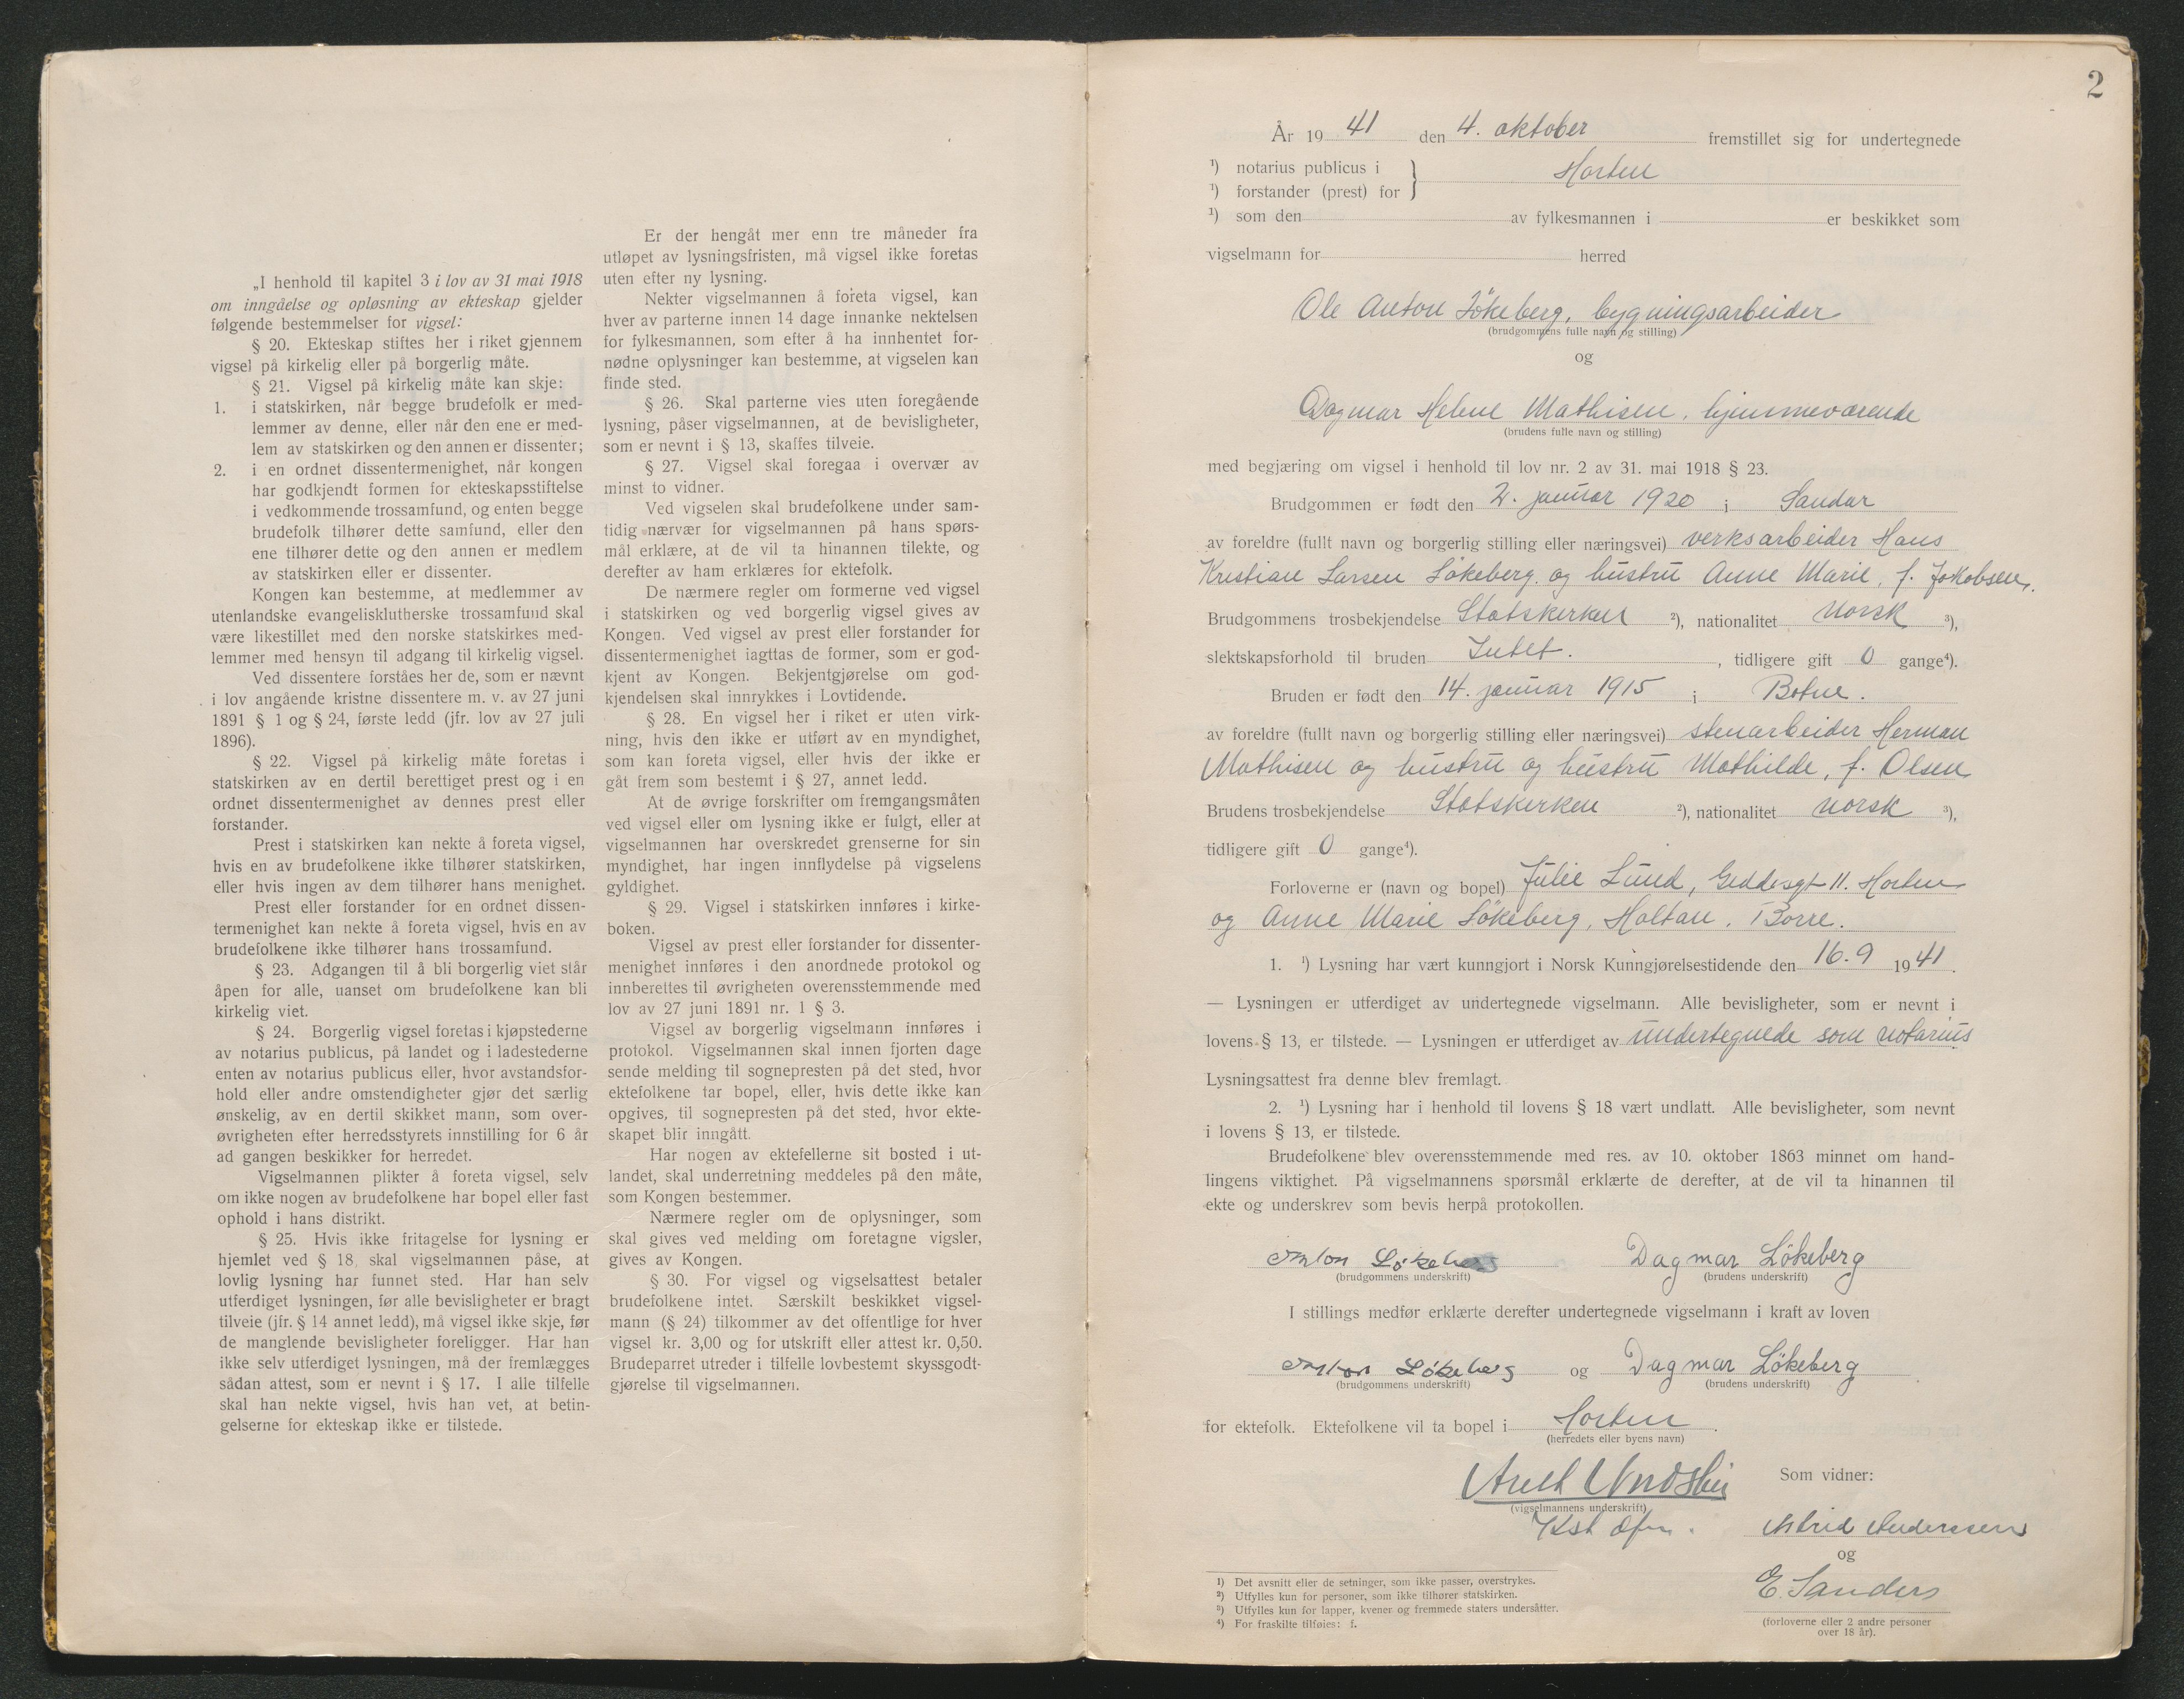 „I henhold til kapitel 3 i lov av 31 mai 1918
om inngåelse og opløsning av ekteskap gjelder
følgende bestemmelser for vigsel:
§ 20. Ekteskap stiftes her i riket gjennem
vigsel på kirkelig eller på borgerlig måte.
§ 21. Vigsel på kirkelig måte kan skje:
1. i statskirken, når begge brudefolk er med-
lemmer av denne, eller når den ene er med-
lem av statskirken og den annen er dissenter;
2. i en ordnet dissentermenighet, når kongen
har godkjendt formen for ekteskapsstiftelse
i vedkommende trossamfund, og enten begge
brudefolk tilhører dette samfund, eller den
ene tilhører dette og den annen er medlem
av statskirken eller er dissenter.
Kongen kan bestemme, at medlemmer av
utenlandske evangelisklutherske trossamfund skal
være likestillet med den norske statskirkes med-
lemmer med hensyn til adgang til kirkelig vigsel.
Ved dissentere forståes her de, som er nævnt
i lov angående kristne dissentere m. v. av 27 juni
1891 § 1 og § 24, første ledd (jfr. lov av 27 juli
1896).
§ 22. Vigsel på kirkelig måte foretas i
statskirken av en dertil berettiget prest og i en
ordnet dissentermenighet av dennes prest eller
forstander.
Prest i statskirken kan nekte å foreta vigsel,
hvis en av brudefolkene ikke tilhører statskirken,
eller hvis ingen av dem tilhører hans menighet.
Prest eller forstander for en ordnet dissen-
termenighet kan nekte å foreta vigsel, hvis en av
brudefolkene ikke tilhører hans trossamfund.
§ 23. Adgangen til å bli borgerlig viet står
åpen for alle, uanset om brudefolkene kan bli
kirkelig viet.
§ 24. Borgerlig vigsel foretas i kjøpstederne
av notarius publicus, på landet og i ladestederne
enten av notarius publicus eller, hvor avstandsfor-
hold eller andre omstendigheter gjør det særlig
ønskelig, av en dertil skikket mann, som over-
øvrigheten efter herredsstyrets innstilling for 6 år
ad gangen beskikker for herredet.
Vigselmannen plikter å foreta vigsel, selv
om ikke nogen av brudefolkene har bopel eller fast
ophold i hans distrikt.
§ 25. Hvis ikke fritagelse for lysning er
hjemlet ved § 18, skal vigselmannen påse, at
lovlig lysning har funnet sted. Har han selv
utferdiget lysningen, før alle bevisligheter er bragt
tilveie (jfr. § 14 annet ledd), må vigsel ikke skje, før
de manglende bevisligheter foreligger. Har han
ikke selv utferdiget lysningen, må der fremlægges
sådan attest, som er nevnt i § 17. I alle tilfelle
skal han nekte vigsel, hvis han vet, at betin-
gelserne for ekteskap ikke er tilstede.
Er der hengåt mer enn tre måneder fra
utløpet av lysningsfristen, må vigsel ikke foretas
uten efter ny lysning.
Nekter vigselmannen å foreta vigsel, kan
hver av parterne innen 14 dage innanke nektelsen
for fylkesmannen, som efter å ha innhentet for-
nødne oplysninger kan bestemme, at vigselen kan
finde sted.
§ 26. Skal parterne vies uten foregående
lysning, påser vigselmannen, at de bevisligheter,
som er nevnt i § 13, skaffes tilveie.
§ 27. Vigsel skal foregaa i overvær av
minst to vidner.
Ved vigselen skal brudefolkene under sam-
tidig nærvær for vigselmannen på hans spørs-
mål erklære, at de vil ta hinannen tilekte, og
derefter av ham erklæres for ektefolk.
De nærmere regler om formerne ved vigsel
i statskirken og ved borgerlig vigsel gives av
Kongen. Ved vigsel av prest eller forstander for
dissentermenighet iagttas de former, som er god-
kjent av Kongen. Bekjentgjørelse om god-
kjendelsen skal innrykkes i Lovtidende.
§ 28. En vigsel her i riket er uten virk-
ning, hvis den ikke er utført av en myndighet,
som kan foreta vigsel, eller hvis der ikke er
gåt frem som bestemt i § 27, annet ledd.
At de øvrige forskrifter om fremgangsmåten
ved vigsel eller om lysning ikke er fulgt, eller at
vigselmannen har overskredet grenserne for sin
myndighet, har ingen innflydelse på vigselens
gyldighet.
§ 29. Vigsel i statskirken innføres i kirke-
boken.
Vigsel av prest eller forstander for dissenter-
menighet innføres i den anordnede protokol og
innberettes til øvrigheten overensstemmende med
lov av 27 juni 1891 nr. 1 § 3.
Vigsel av borgerlig vigselmann innføres i
protokol. Vigselmannen skal innen fjorten dage
sende melding til sognepresten på det sted, hvor
ektefolkene tar bopel, eller, hvis dette ikke kan
opgives, til sognepresten på det sted, hvor ekte-
skapet blir inngått.
Har nogen av ektefellerne sit bosted i ut-
landet, skal underretning meddeles på den måte,
som Kongen bestemmer.
Nærmere regler om de oplysninger, som
skal gives ved melding om foretagne vigsler,
gives av Kongen.
§ 30. For vigsel og vigselsattest betaler
brudefolkene intet. Særskilt beskikket vigsel-
mann (§ 24) tilkommer av det offentlige for hver
vigsel kr. 3,00 og for utskrift eller attest kr. 0,50.
Brudeparret utreder i tilfelle lovbestemt skyssgodt-
gjørelse til vigselmannen.
2
År 1941 den 4. oktober fremstillet sig for undertegnede
¹) notarius publicus i
¹) forstander (prest) for } Horten
¹) som den av fylkesmannen i er beskikket som
vigselmann for herred
Ole Anton Lökeberg, bygningsarbeider
(brudgommens fulle navn og stilling)
og
Dagmar Helene Mathisen, hjemmeværende
(brudens fulle navn og stilling)
med begjæring om vigsel i henhold til lov nr. 2 av 31. mai 1918 § 23.
Brudgommen er født den 2. januar 1920 i Sandar
av foreldre (fullt navn og borgerlig stilling eller næringsvei) verksarbeider Hans
Kristian Larsen Lökeberg og hustru Anne Marie, f. Jakobsen.
Brudgommens trosbekjendelse Statskirken ²), nationalitet norsk ³),
slektskapsforhold til bruden Intet. , tidligere gift 0 gange⁴).
Bruden er født den 14. januar 1915 i Botne.
av foreldre (fullt navn og borgerlig stilling eller næringsvei) stenarbeider Herman
Mathisen og hustru og hustru Mathilde, f. Olsen
Brudens trosbekjendelse Statskirken ²), nationalitet norsk ³),
tidligere gift 0 gange⁴).
Forloverne er (navn og bopel) Julie Lund, Geddesgt 11. Horten
og Anne Marie Lökeberg, Holtan, Borre.
1. ¹) Lysning har vært kunngjort i Norsk Kunngjørelsestidende den 16.9 1941.
— Lysningen er utferdiget av undertegnede vigselmann. Alle bevisligheter, som er nevnt i
lovens § 13, er tilstede. — Lysningen er utferdiget av undertegnede som notarius
Lysningsattest fra denne blev fremlagt.
2. ¹) Lysning har i henhold til lovens § 18 vært undlatt. Alle bevisligheter, som nevnt
i lovens § 13, er tilstede.
Brudefolkene blev overensstemmende med res. av 10. oktober 1863 minnet om hand-
lingens viktighet. På vigselmannens spørsmål erklærte de derefter, at de vil ta hinannen til
ekte og underskrev som bevis herpå protokollen.
Anton Lökeberg Dagmar Lökeberg
(brudgommens underskrift) (brudens underskrift)
I stillings medfør erklærte derefter undertegnede vigselmann i kraft av loven
Anton Lökeberg og Dagmar Lökeberg
(brudgommens underskrift) (brudens underskrift)
for ektefolk. Ektefolkene vil ta bopel i Horten.
(herredets eller byens navn)
Som vidner:
(vigselmannens underskrift)
Astrid Anderssen
og
E. Sanders
(forloverne eller 2 andre personer
over 18 år).
¹) Det avsnitt eller de setninger, som ikke passer, overstrykes.
²) Utfylles kun for personer, som ikke tilhører statskirken.
³) Utfylles kun for lapper, kvener og fremmede staters undersåtter.
⁴) For fraskilte tilføies: f.